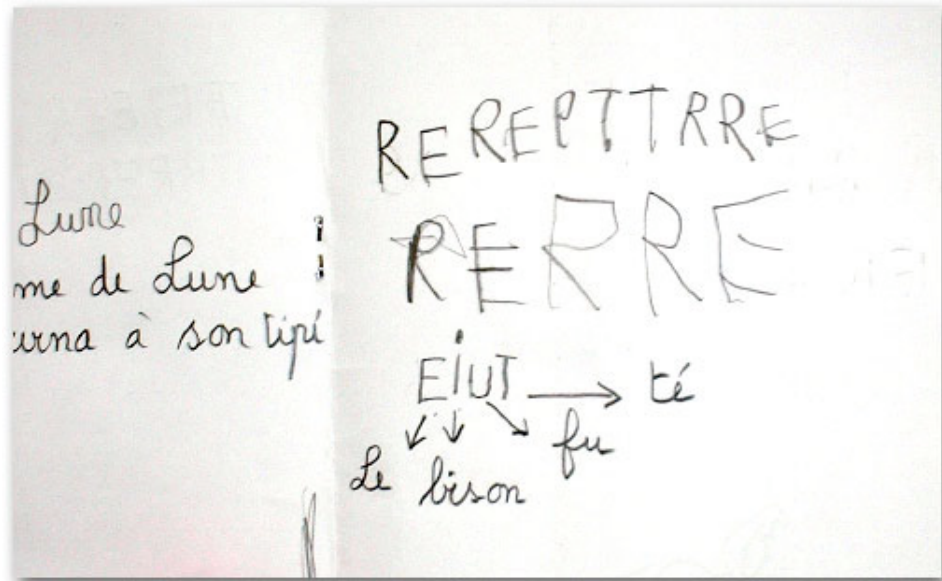 Lune
me de Lune
urna à son tipi
RE REPTTRRE
RERRE
EiUT té
fu
Le bison